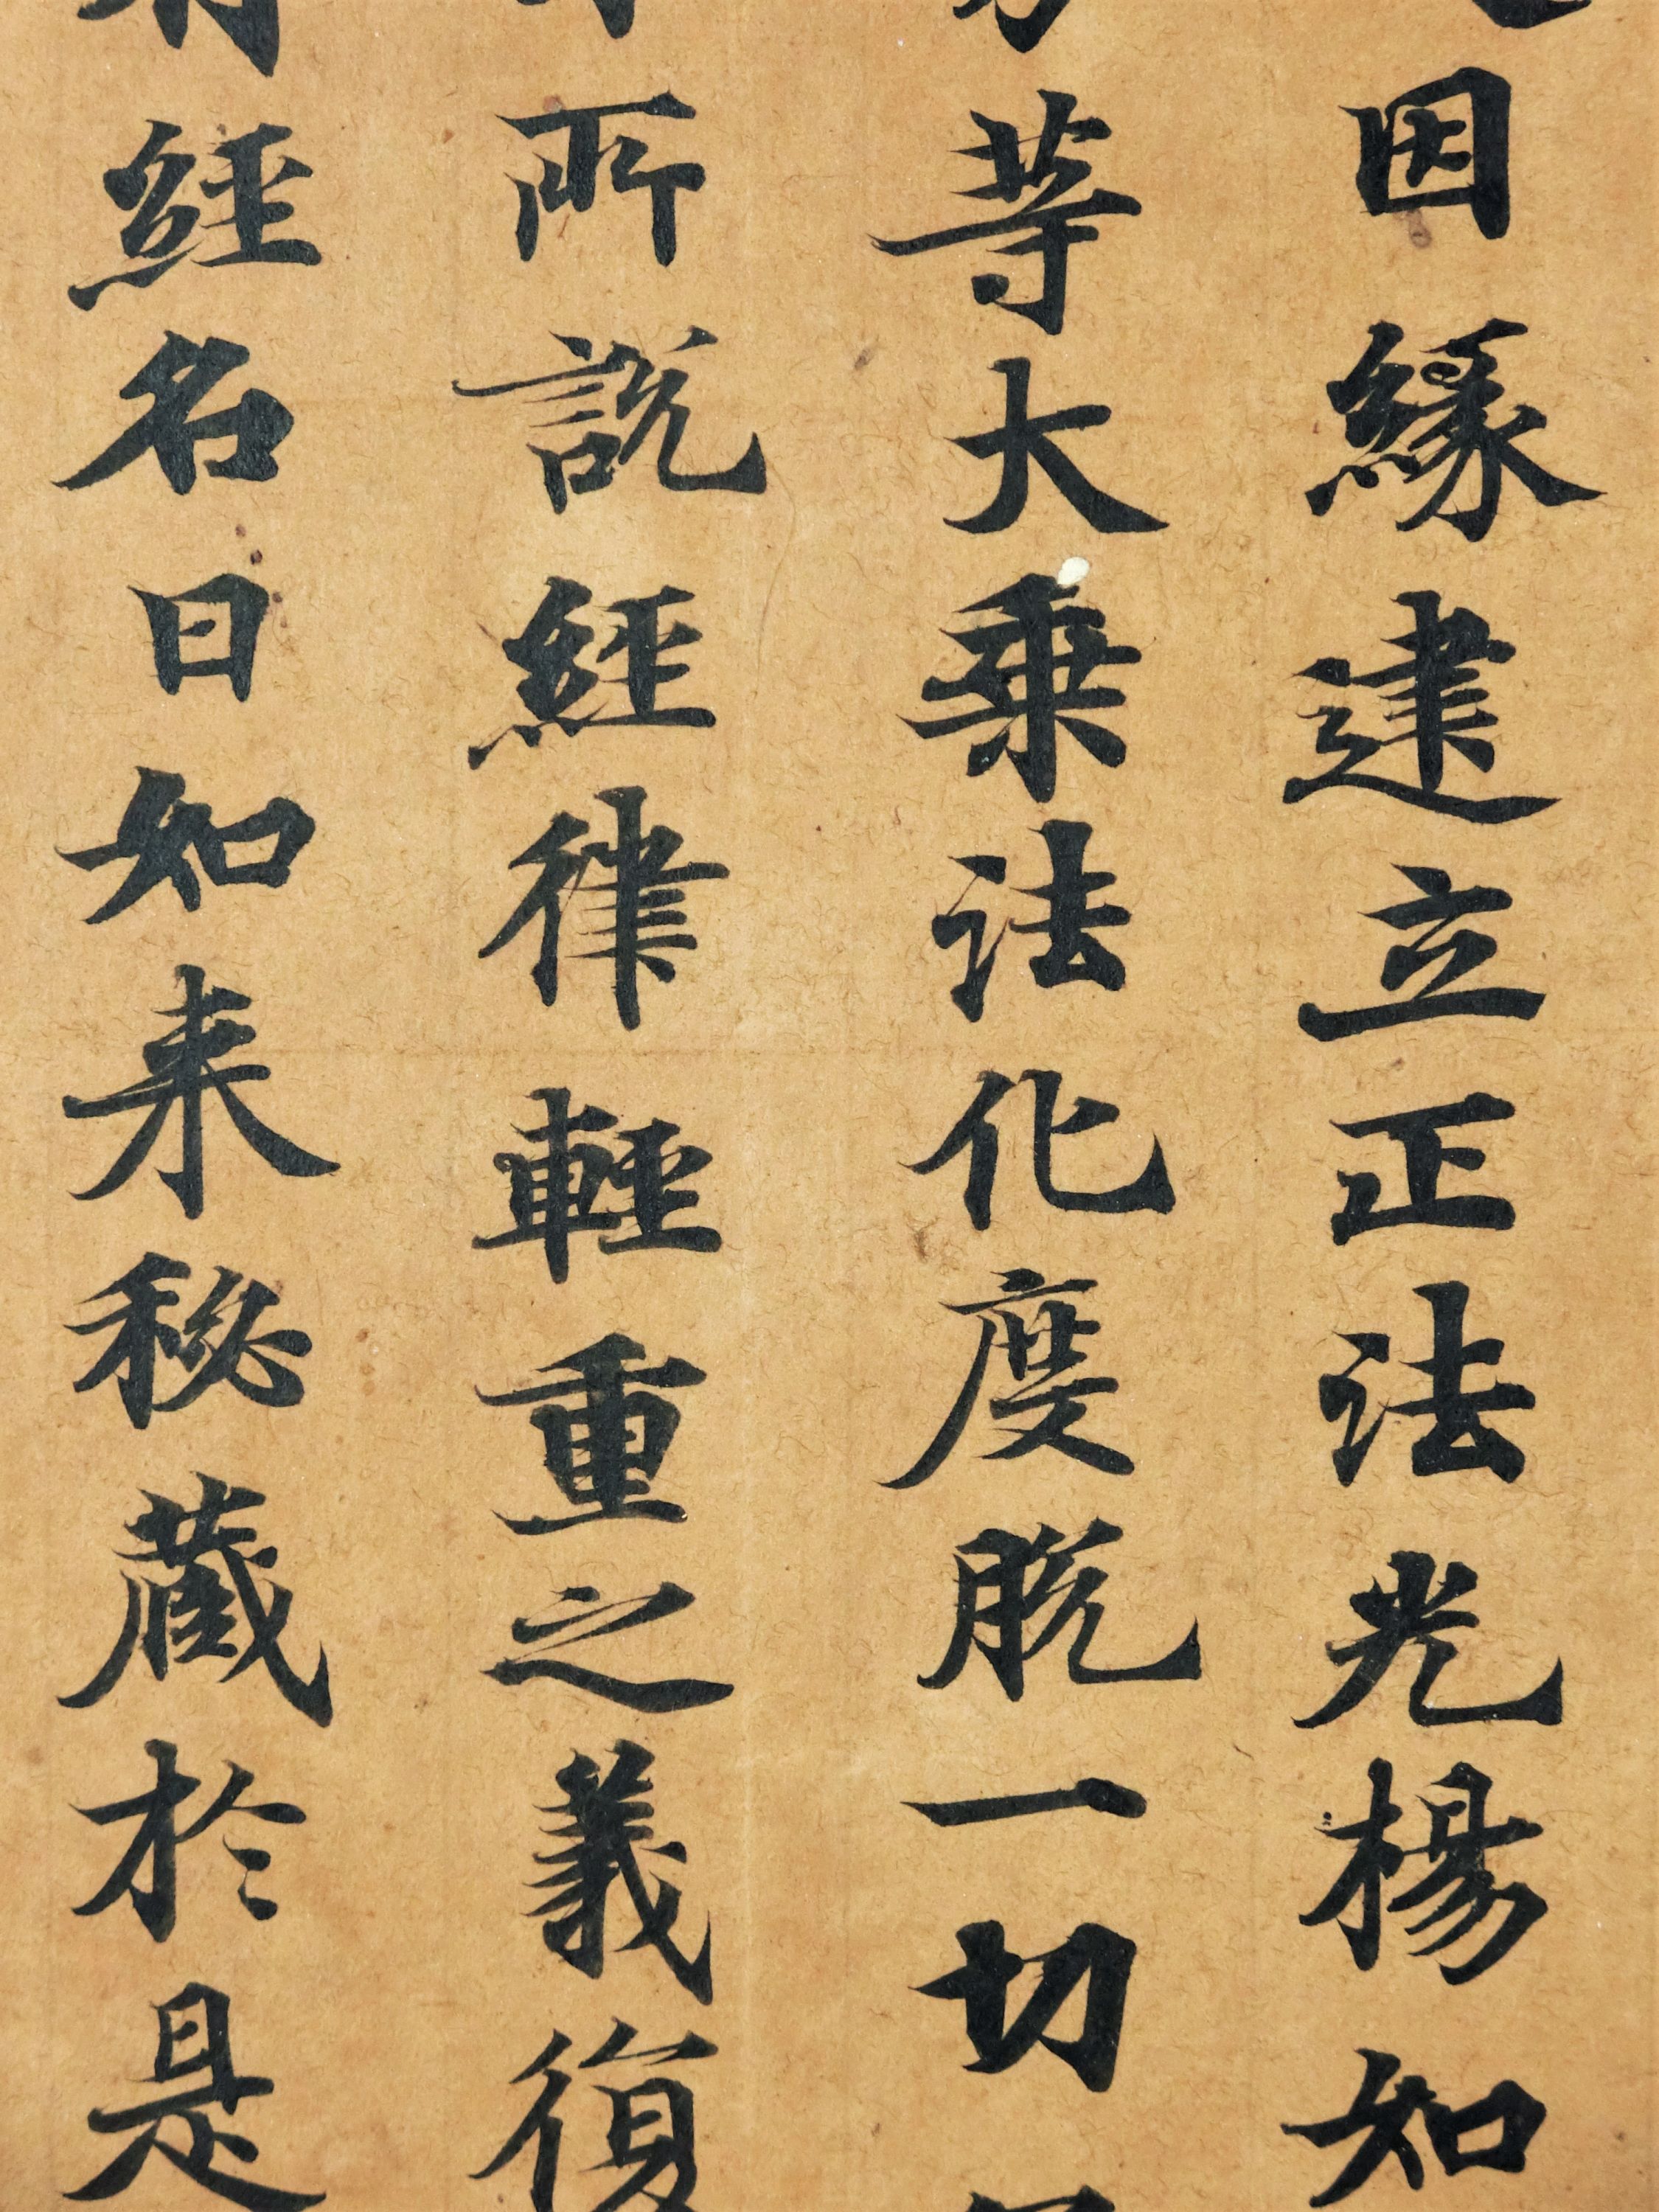 因緣建立正法光楊知
等大乗法化度脫一切
所說經律輕重之義復
經名曰如来秘藏於是